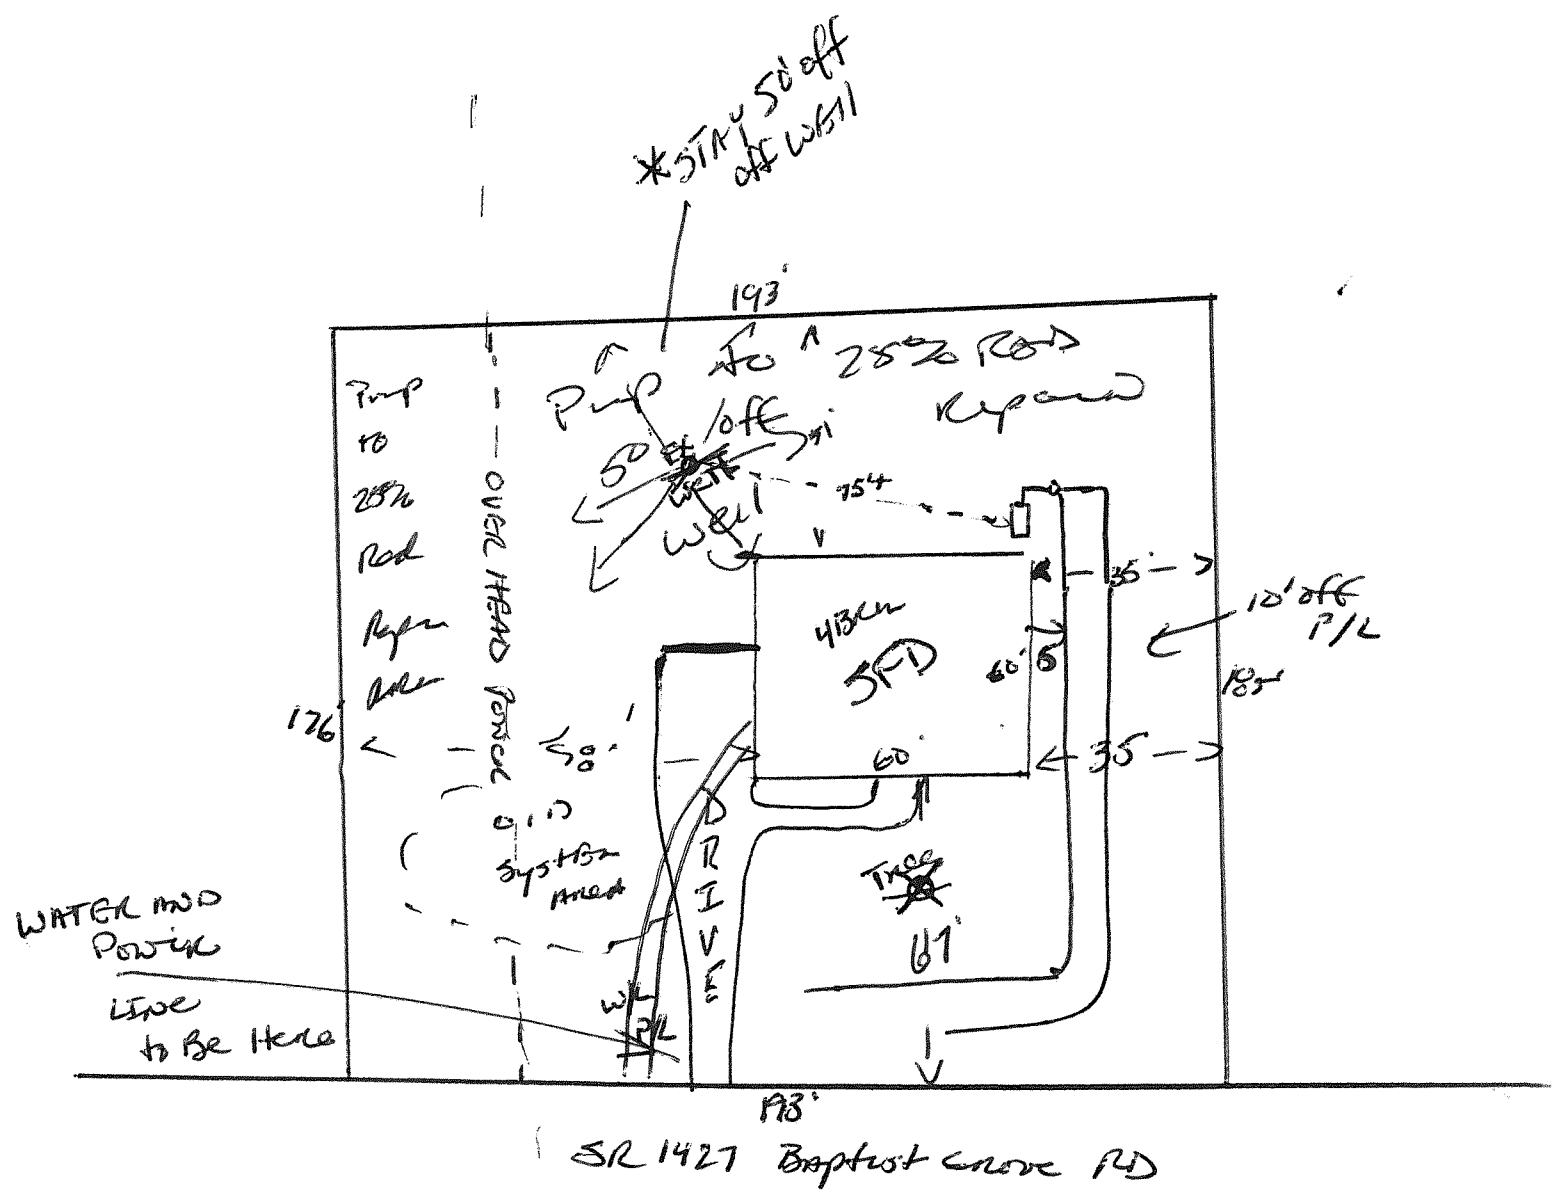 *STAY 50' off
off WELL
193'
Pump
to
25% RED
Repair
Pump
to
25%
Red
Repair
Area
50
off
Ex
Well
Well
75+
OVER HEAD POWER
4 BRM
SFD
60'
60'
5
35'
35
10' off
P/L
176'
OLD
SYSTEM
AREA
DRIVE
Tree
61'
WATER AND
POWER
LINE
to Be Here
W/L
P/L
193'
SR 1427 Baptist Grove RD